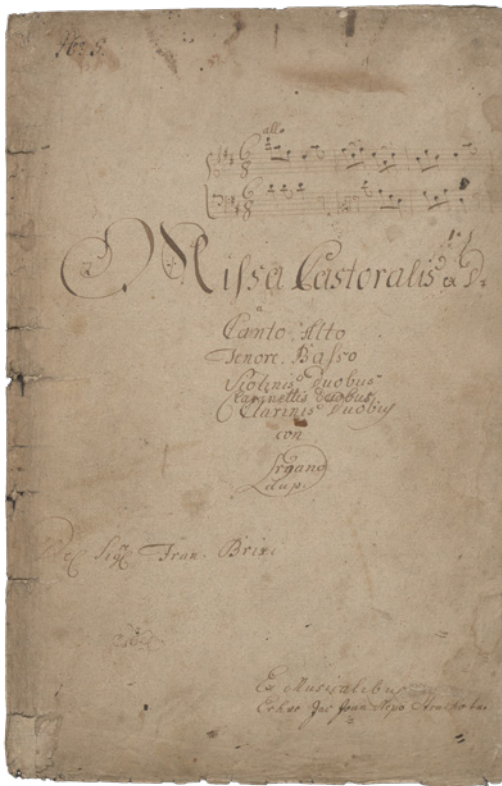 No 5.
allo
Missa Pastoralis ex D.
a
Canto Alto
Tenore, Basso
Violinis Duobus
Clarinettis duobus
Clarinis Duobus
con
Organo
dup.
Del Sigre Fran. Brixi
Ex Musicalibus
Joan Nepo